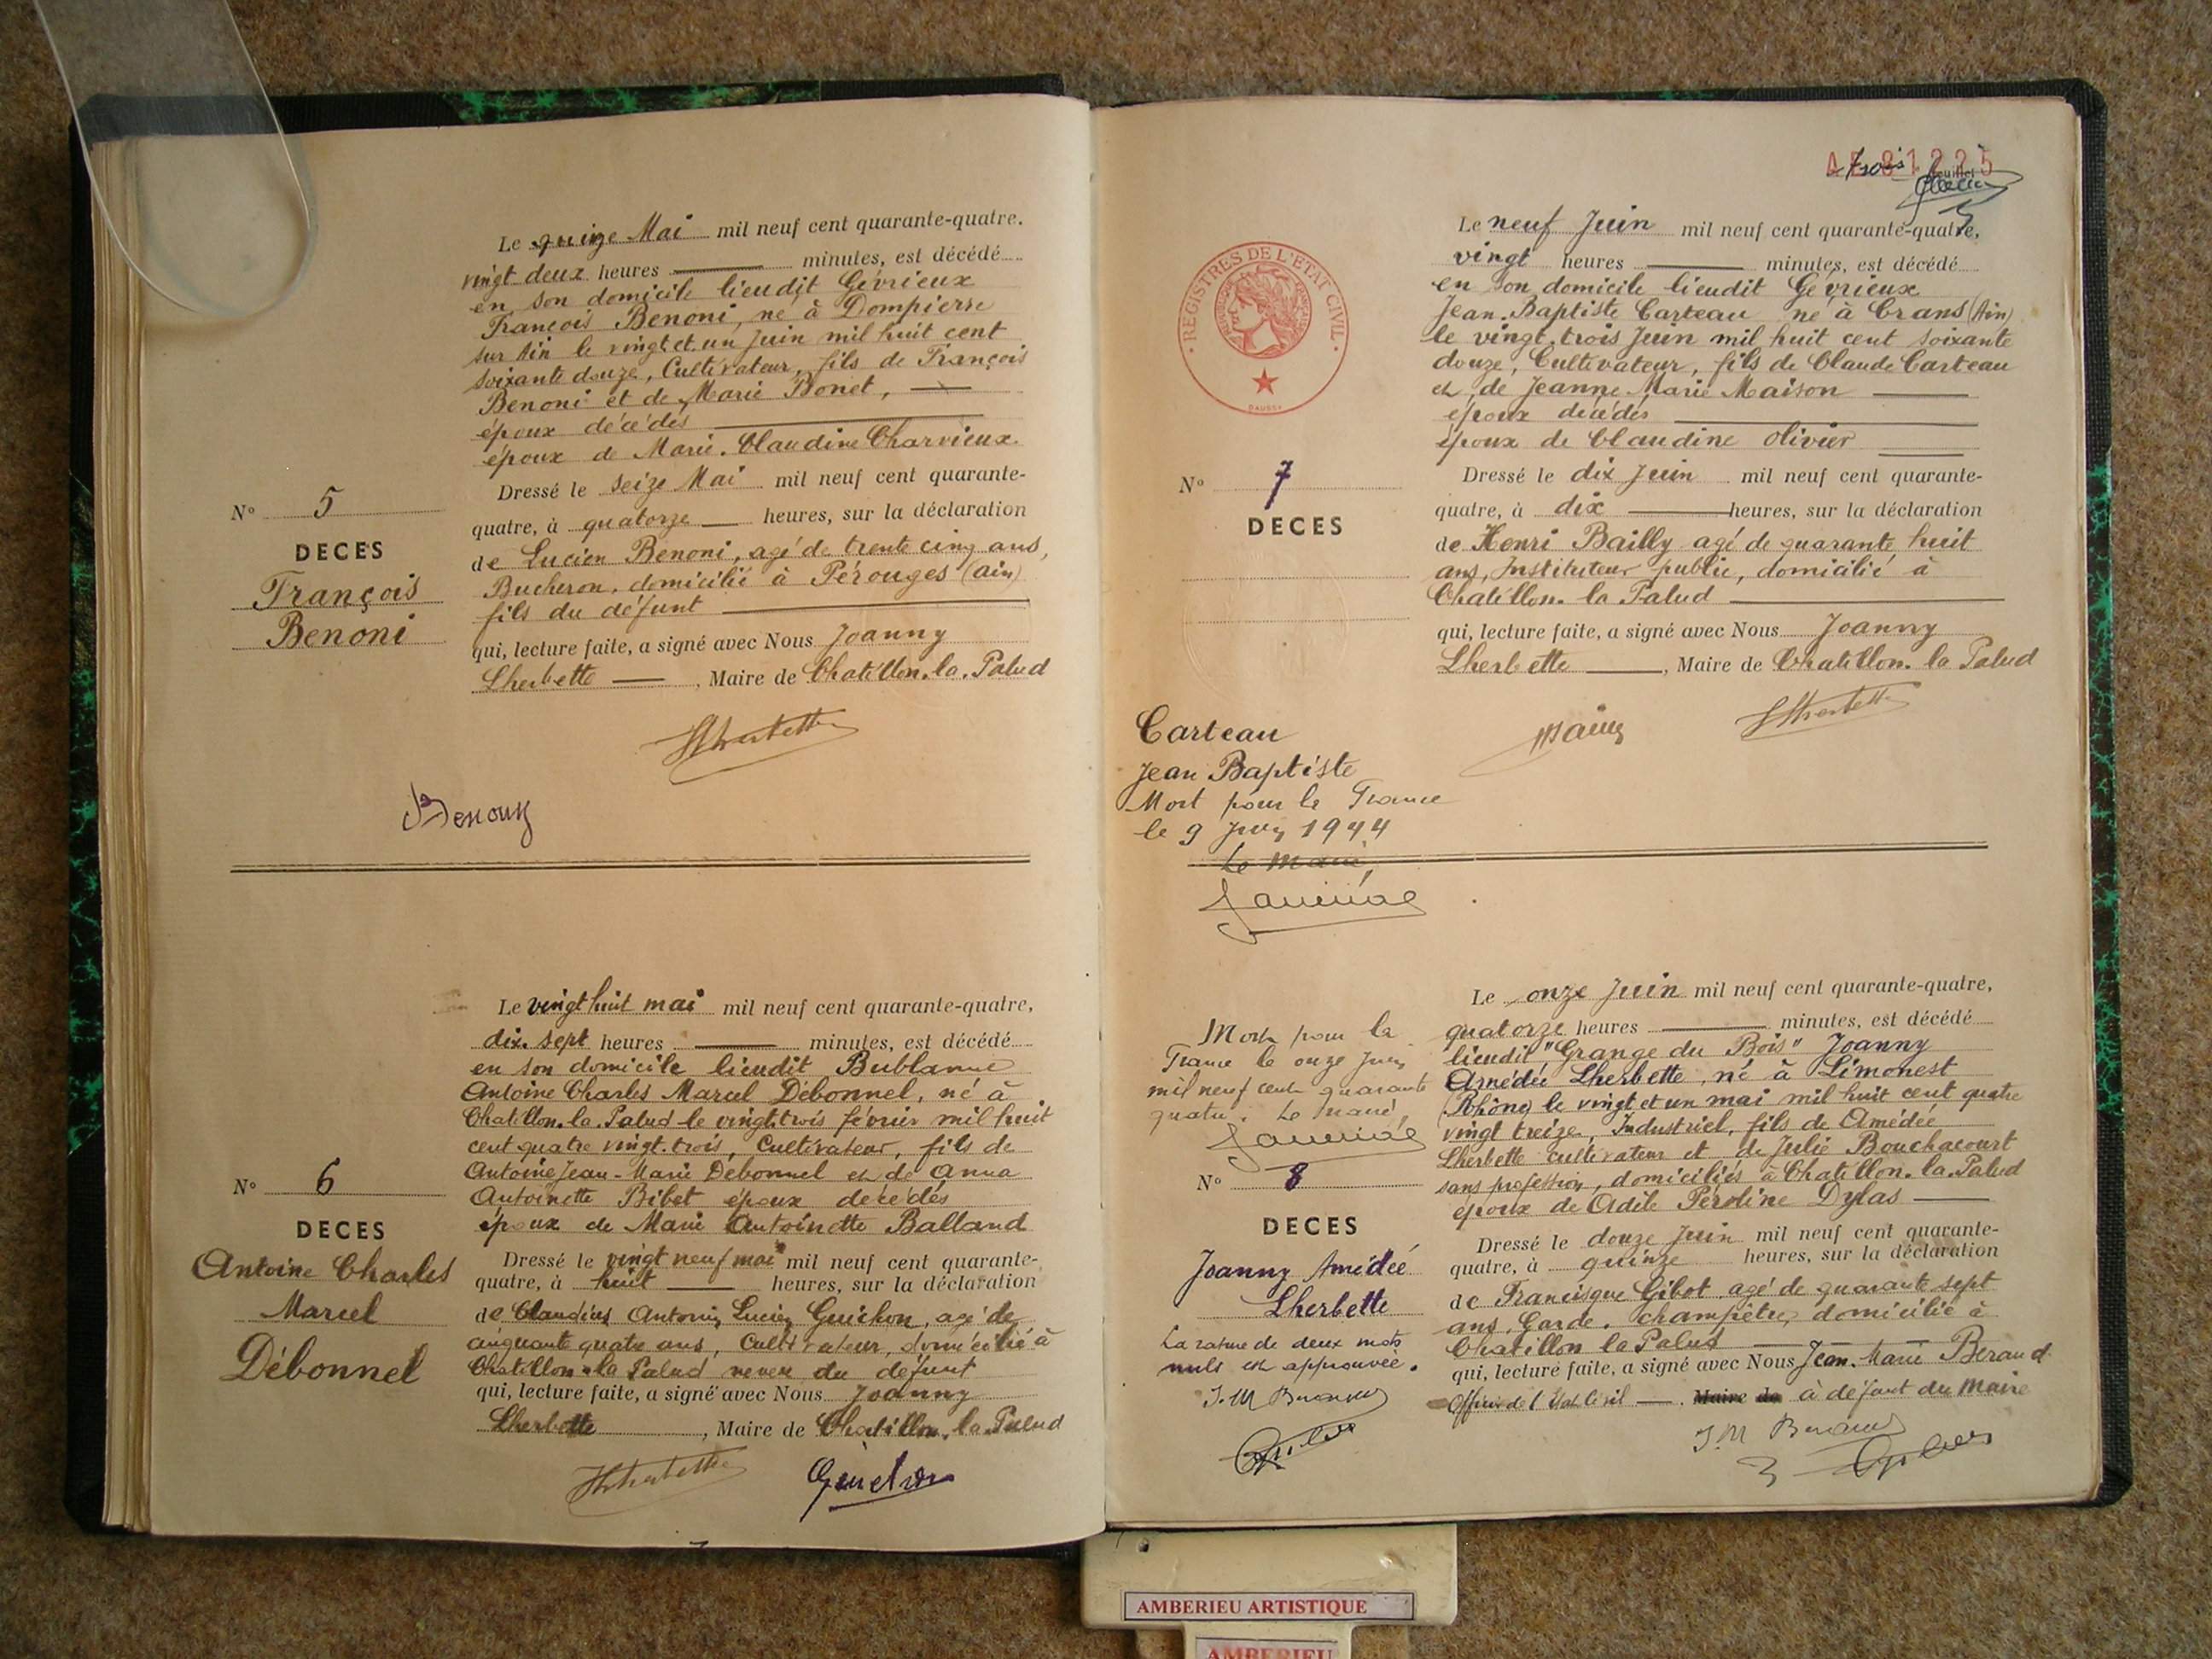 Le quinze Mai mil neuf cent quarante-quatre.
vingt deux heures minutes, est décédé
en son domicile lieudit Gévrieux
François Benoni, né à Dompierre
sur Ain le vingt et un Juin mil huit cent
soixante douze, Cultivateur, fils de François
Benoni et de Marie Bonet,
époux décédés
époux de Marie. Claudine Charvieux.
N° 5
DECES
François
Benoni
Dressé le seize Mai mil neuf cent quarante-
quatre, à quatorze heures, sur la déclaration
de Lucien Benoni, agé de trente cinq ans,
Bucheron, domicilié à Pérouges (ain)
fils du défunt
qui, lecture faite, a signé avec Nous Joanny
Lherbette , Maire de Chatillon. la. Palud
Lherbette
Benony
Le vingt huit mai mil neuf cent quarante-quatre,
dix. sept heures minutes, est décédé
en son domicile lieudit Bublanne
Antoine Charles Marcel Débonnel, né à
Chatillon. la. Palud le vingt. trois février mil huit
cent quatre vingt. trois, Cultivateur, fils de
Antoine Jean-Marie Debonnel et de Anna
Antoinette Bibet époux décédés
époux de Marie Antoinette Balland
N° 6
DECES
Antoine Charles
Marcel
Débonnel
Dressé le vingt neuf mai mil neuf cent quarante-
quatre, à huit heures, sur la déclaration
de Claudius Antonin Lucien Guichon, agé de
cinquante quatre ans, Cultivateur, domicilié à
Chatillon. la Palud neveu du défunt
qui, lecture faite, a signé avec Nous Joanny
Lherbette , Maire de Chatillon. la. Palud
Lherbette Guichon
trois feuillet
REGISTRES DE L'ETAT CIVIL
Le neuf Juin mil neuf cent quarante-quatre,
vingt heures minutes, est décédé
en son domicile lieudit Gévrieux
Jean. Baptiste Carteau né à Crans (Ain)
le vingt. trois Juin mil huit cent soixante
douze, Cultivateur, fils de Claude Carteau
et de Jeanne Marie Maison
époux décédés
époux de Claudine Olivier
N° 7
DECES
Dressé le dix Juin mil neuf cent quarante-
quatre, à dix heures, sur la déclaration
de Henri Bailly agé de quarante huit
ans, Instituteur public, domicilié à
Chatillon. la Palud
qui, lecture faite, a signé avec Nous Joanny
Lherbette , Maire de Chatillon. la Palud
Bailly Lherbette
Carteau
Jean Baptiste
Mort pour la France
le 9 Juin 1944
Le Maire,
Le onze Juin mil neuf cent quarante-quatre,
quatorze heures minutes, est décédé
lieudit "Grange du Bois" Joanny
Amédée Lherbette, né à Limonest
(Rhône) le vingt et un mai mil huit cent quatre
vingt treize, Industriel, fils de Amédée
Lherbette cultivateur et de Julie Bouchacourt
sans profession, domiciliés à Chatillon. la. Palud
époux de Adèle Péroline Dylas
Mort pour la
France le onze Juin
mil neuf cent quarante
quatre. Le maire,
N° 8
DECES
Joanny Amédée
Lherbette
La rature de deux mots
nuls est approuvée.
J. M Beraud
Dressé le douze Juin mil neuf cent quarante-
quatre, à quinze heures, sur la déclaration
de Francisque Gibot, agé de quarante sept
ans, Garde. champêtre, domicilié à
Chatillon la Palud
qui, lecture faite, a signé avec Nous Jean. Marie Beraud
Officier de l'Etat Civil . Maire de à défaut du Maire
J. M Beraud
AMBERIEU ARTISTIQUE
AMBERIEU